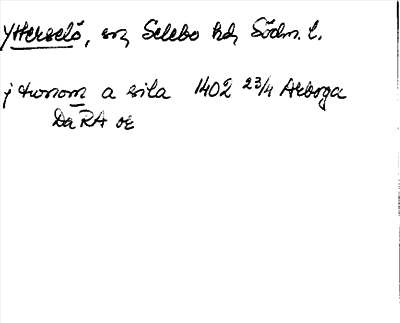 Ytterselö, sn, Selebo hd, Södm. l.
j thorom a sila 1402 23/4 Arboga
Da RA or